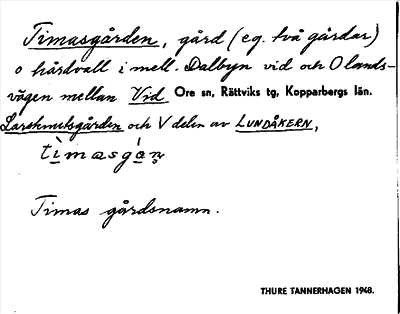 Timasgården, gård (eg. två gårdar)
o hårdvall i mell. Dalbyn vid och O lands-
vägen mellan Vid Ore sn, Rättviks tg, Kopparbergs län.
Larsknutsgården och V delen av LUNDÅKERN,
tìmasgán̥
Timas gårdsnamn.
THURE TANNERHAGEN 1948.